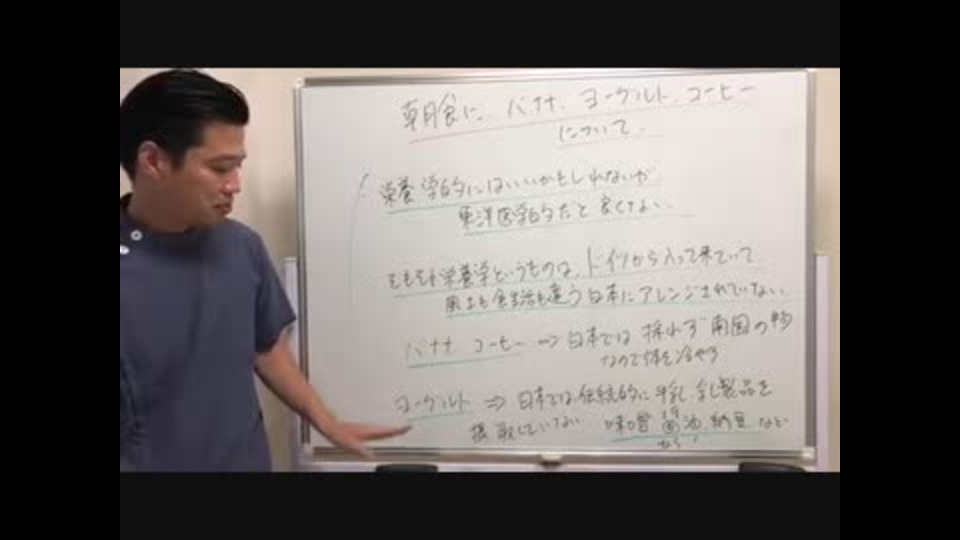 朝食に、バナナ、ヨーグルト、コーヒー
について
栄養学的にはいいかもしれないが
東洋医学的だと良くない
そもそも栄養学というものは、ドイツから入って来ていて
風土も食生活も違う日本にアレンジされていない。
バナナ コーヒー ⇒ 日本では採れず南国の物
なので体を冷やす
ヨーグルト ⇒ 日本では伝統的に牛乳、乳製品を
摂取していない 味噌 醤油、納豆、など